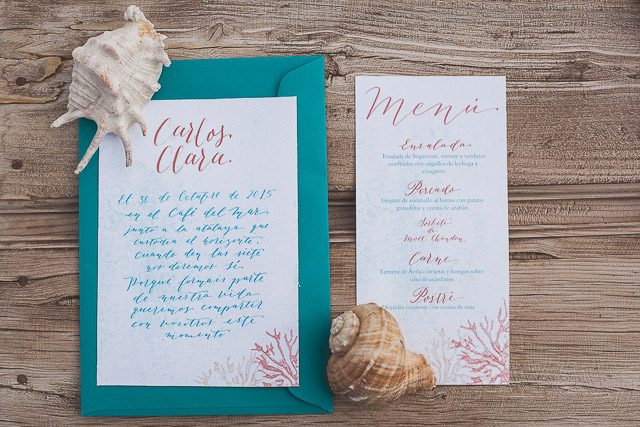 Carlos,
Clara.
El 30 de Octubre de 2015
en el Café del Mar
junto a la atalaya que
custodia el horizonte.
Cuando den las siete
nos diremos sí.
Porque formais parte
de nuestra vida
queremos compartir
con vosotros este
momento
Menú.
Ensalada.
Ensalada de bogavante, tomate y verduras
confitados con cogollos de lechuga y
vinagreta
Pescado
Lingote de rodaballo al horno con patatas
panaderas y crema de
Sorbete
de
Moët Chandon.
Carne
Ternera de Ávila con setas y hongos sobre
salsa de arándanos
Postre
crujiente con crema de nata